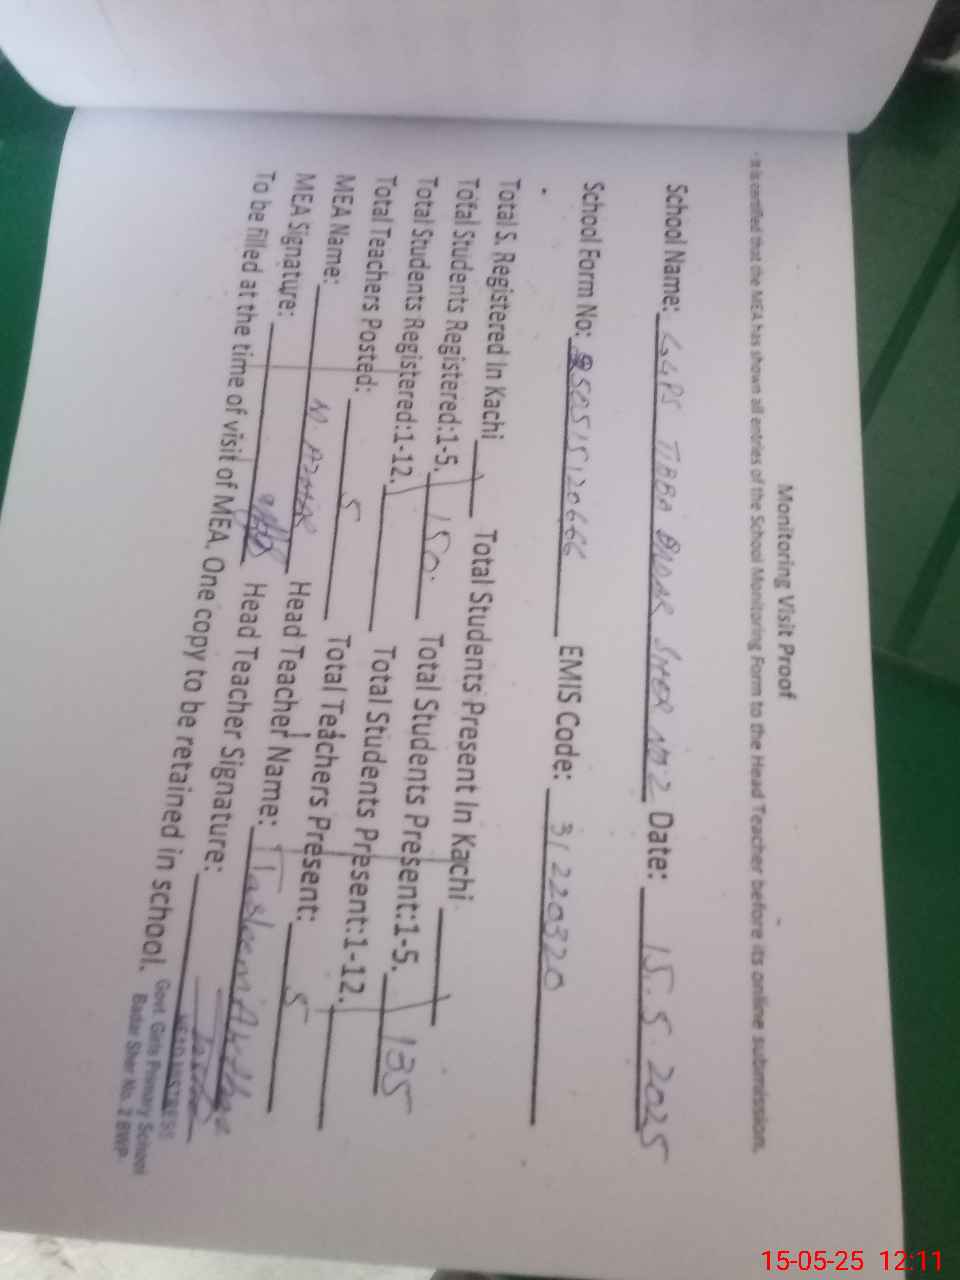 Monitoring Visit Proof
· It is certified that the MEA has shown all entries of the School Monitoring Form to the Head Teacher before its online submission.
School Name: GGPS TIBBA BADAR SHER NO2 Date: 15.5.2025
School Form No: 2505151520666 EMIS Code: 31220320
Total S. Registered In Kachi \ Total Students Present In Kachi \
Total Students Registered:1-5. 150. Total Students Present:1-5. 135
Total Students Registered:1-12. \ Total Students Present:1-12. \
Total Teachers Posted: 5 Total Teachers Present: 5
MEA Name: M. AZHAR Head Teacher Name: Tasleem Akhtar
MEA Signature: Head Teacher Signature:
To be filled at the time of visit of MEA. One copy to be retained in school.
HEAD MISTRESS
Govt. Girls Primary School
Badar Sher No. 2 BWP
15-05-25 12:11